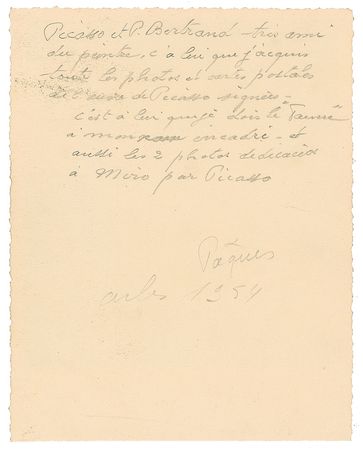 Picasso et P. Bertrand - très ami
du peintre, c'à lui que j'acquis
toute les photos et cartes postales
de Picasso signées -
c'est à lui que je dois le "Taureau"
à mon encadré - et
aussi les 2 photos dédicacées
à Miro par Picasso
Pâques
arles 1954